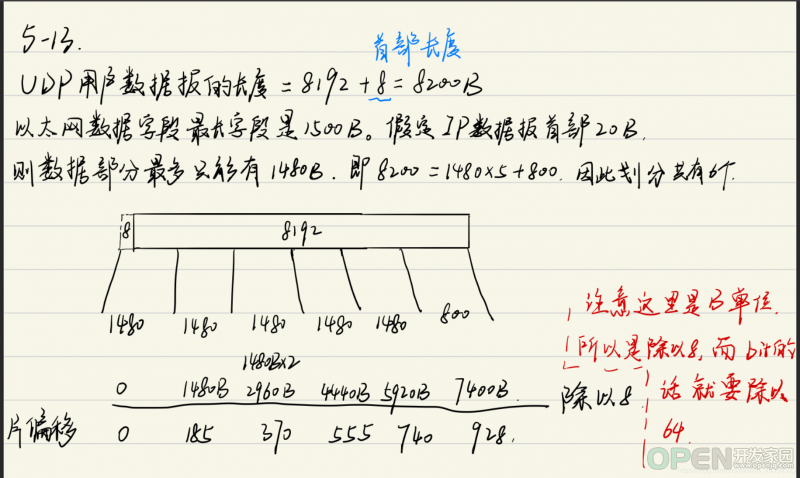 5-13.
首部长度
UDP用户数据报的长度 = 8192 + 8 = 8200B
以太网数据字段最长字段是1500B。假定IP数据报首部20B.
则数据部分最多只能有1480B. 即 8200 = 1480×5+800. 因此划分共有6个.
8 8192
1480 1480 1480 1480 1480 800
1480B×2
0 1480B 2960B 4440B 5920B 7400B. 除以8
片偏移 0 185 370 555 740 928.
注意这里是B单位.
所以是除以8, 而bit的
话就要除以
64.
OPEN开发家园